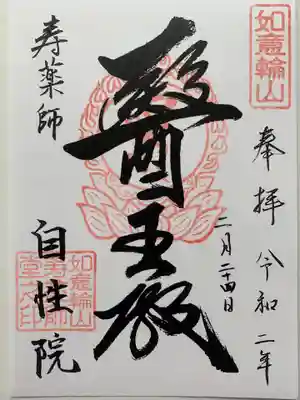 如意輪山
奉拝 令和二年
二月二十四日
醫王殿
寿薬師
自性院
如意輪山